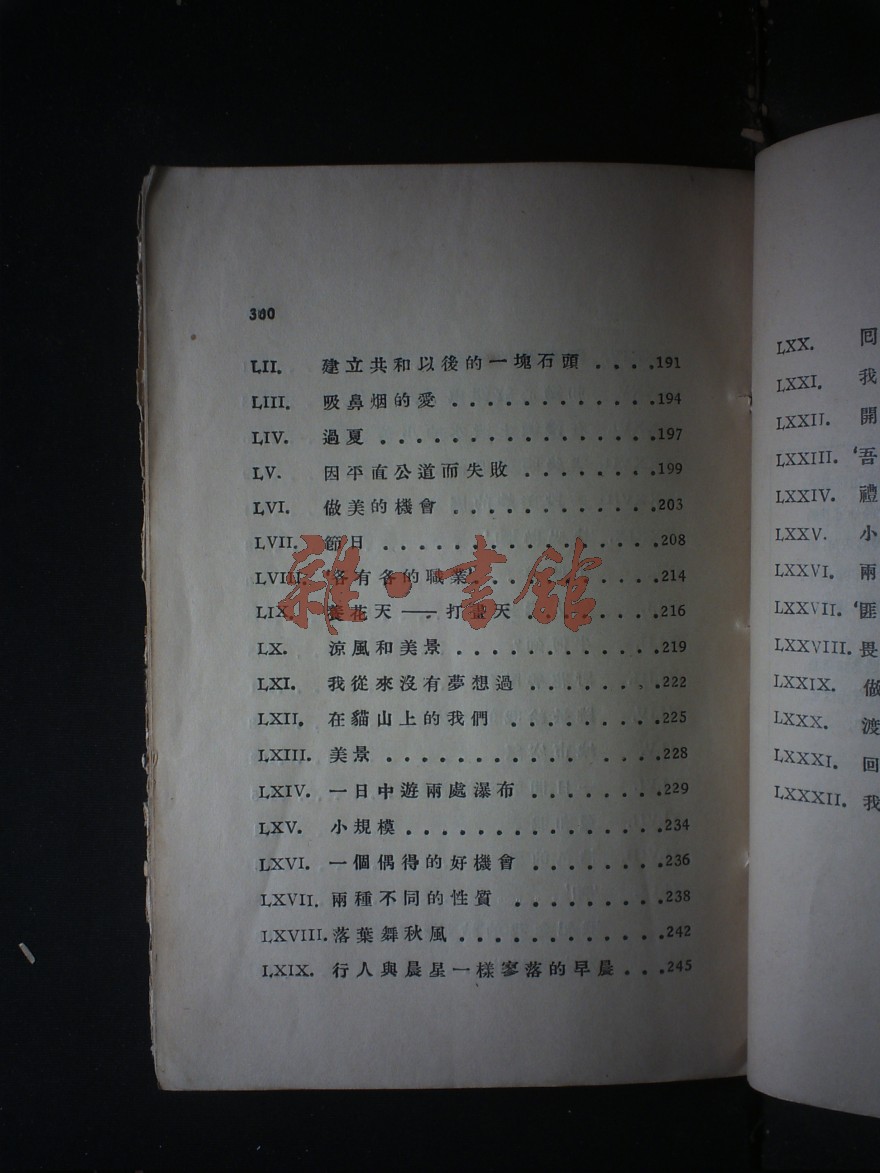 300
LII. 建立共和以後的一塊石頭 . . . .191
LIII. 吸鼻烟的愛 . . . . . . . . . . . .194
LIV. 過夏 . . . . . . . . . . . . . . . .197
LV. 因平直公道而失敗 . . . . . . . . .199
LVI. 做美的機會 . . . . . . . . . . . .203
LVII. 節日 . . . . . . . . . . . . . . . .208
LVIII. '各有各的職業'. . . . . . . . . . .214
LIX. 養花天——打盡天 . . . . . . . . .216
LX. 涼風和美景 . . . . . . . . . . . .219
LXI. 我從來沒有夢想過 . . . . . . . . .222
LXII. 在貓山上的我們 . . . . . . . . . .225
LXIII. 美景 . . . . . . . . . . . . . . . .228
LXIV. 一日中遊兩處瀑布 . . . . . . . .229
LXV. 小規模 . . . . . . . . . . . . . . .234
LXVI. 一個偶得的好機會 . . . . . . . .236
LXVII. 兩種不同的性質 . . . . . . . . .238
LXVIII. 落葉舞秋風 . . . . . . . . . . . .242
LXIX. 行人與晨星一樣寥落的早晨 . . .245
雜·書館
LXX. 回
LXXI. 我
LXXII. 開
LXXIII. '吾
LXXIV. 禮
LXXV. 小
LXXVI. 兩
LXXVII. '匪
LXXVIII. 畏
LXXIX. 做
LXXX. 渡
LXXXI. 回
LXXXII. 我